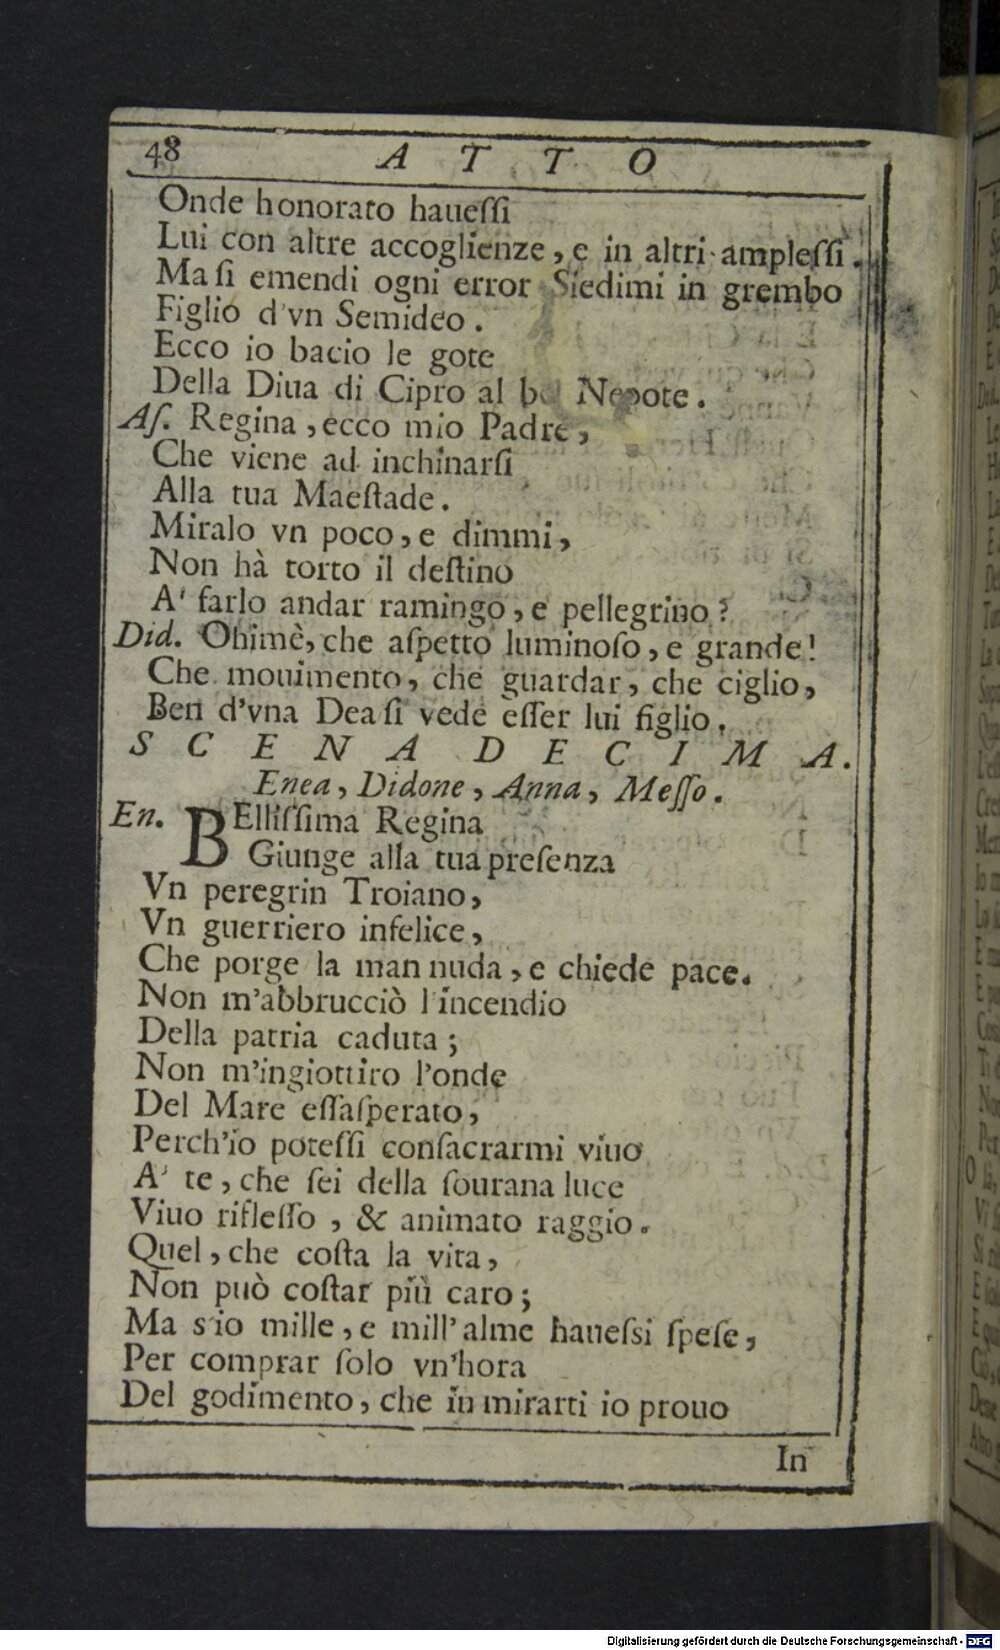 48 A T T O
Onde honorato haueſſi
Lui con altre accoglienze, e in altri ampleſſi.
Ma ſi emendi ogni error Siedimi in grembo
Figlio d'vn Semideo.
Ecco io bacio le gote
Della Diua di Cipro al bel Nepote.
Aſ. Regina, ecco mio Padre,
Che viene ad inchinarſi
Alla tua Maeſtade.
Miralo vn poco, e dimmi,
Non hà torto il deſtino
A' farlo andar ramingo, e pellegrino?
Did. Ohimè, che aſpetto luminoſo, e grande!
Che mouimento, che guardar, che ciglio,
Ben d'vna Dea ſi vede eſſer lui figlio.
S C E N A D E C I M A.
Enea, Didone, Anna, Meſſo.
En. BElliſſima Regina
Giunge alla tua preſenza
Vn peregrin Troiano,
Vn guerriero infelice,
Che porge la man nuda, e chiede pace.
Non m'abbrucciò l'incendio
Della patria caduta;
Non m'ingiottiro l'onde
Del Mare eſſaſperato,
Perch'io poteſſi conſacrarmi viuo
A' te, che ſei della ſourana luce
Viuo rifleſſo, & animato raggio.
Quel, che coſta la vita,
Non può coſtar più caro;
Ma s'io mille, e mill' alme haueſsi ſpeſe,
Per comprar ſolo vn'hora
Del godimento, che in mirarti io prouo
In
Digitalisierung gefördert durch die Deutsche Forschungsgemeinschaft - DFG